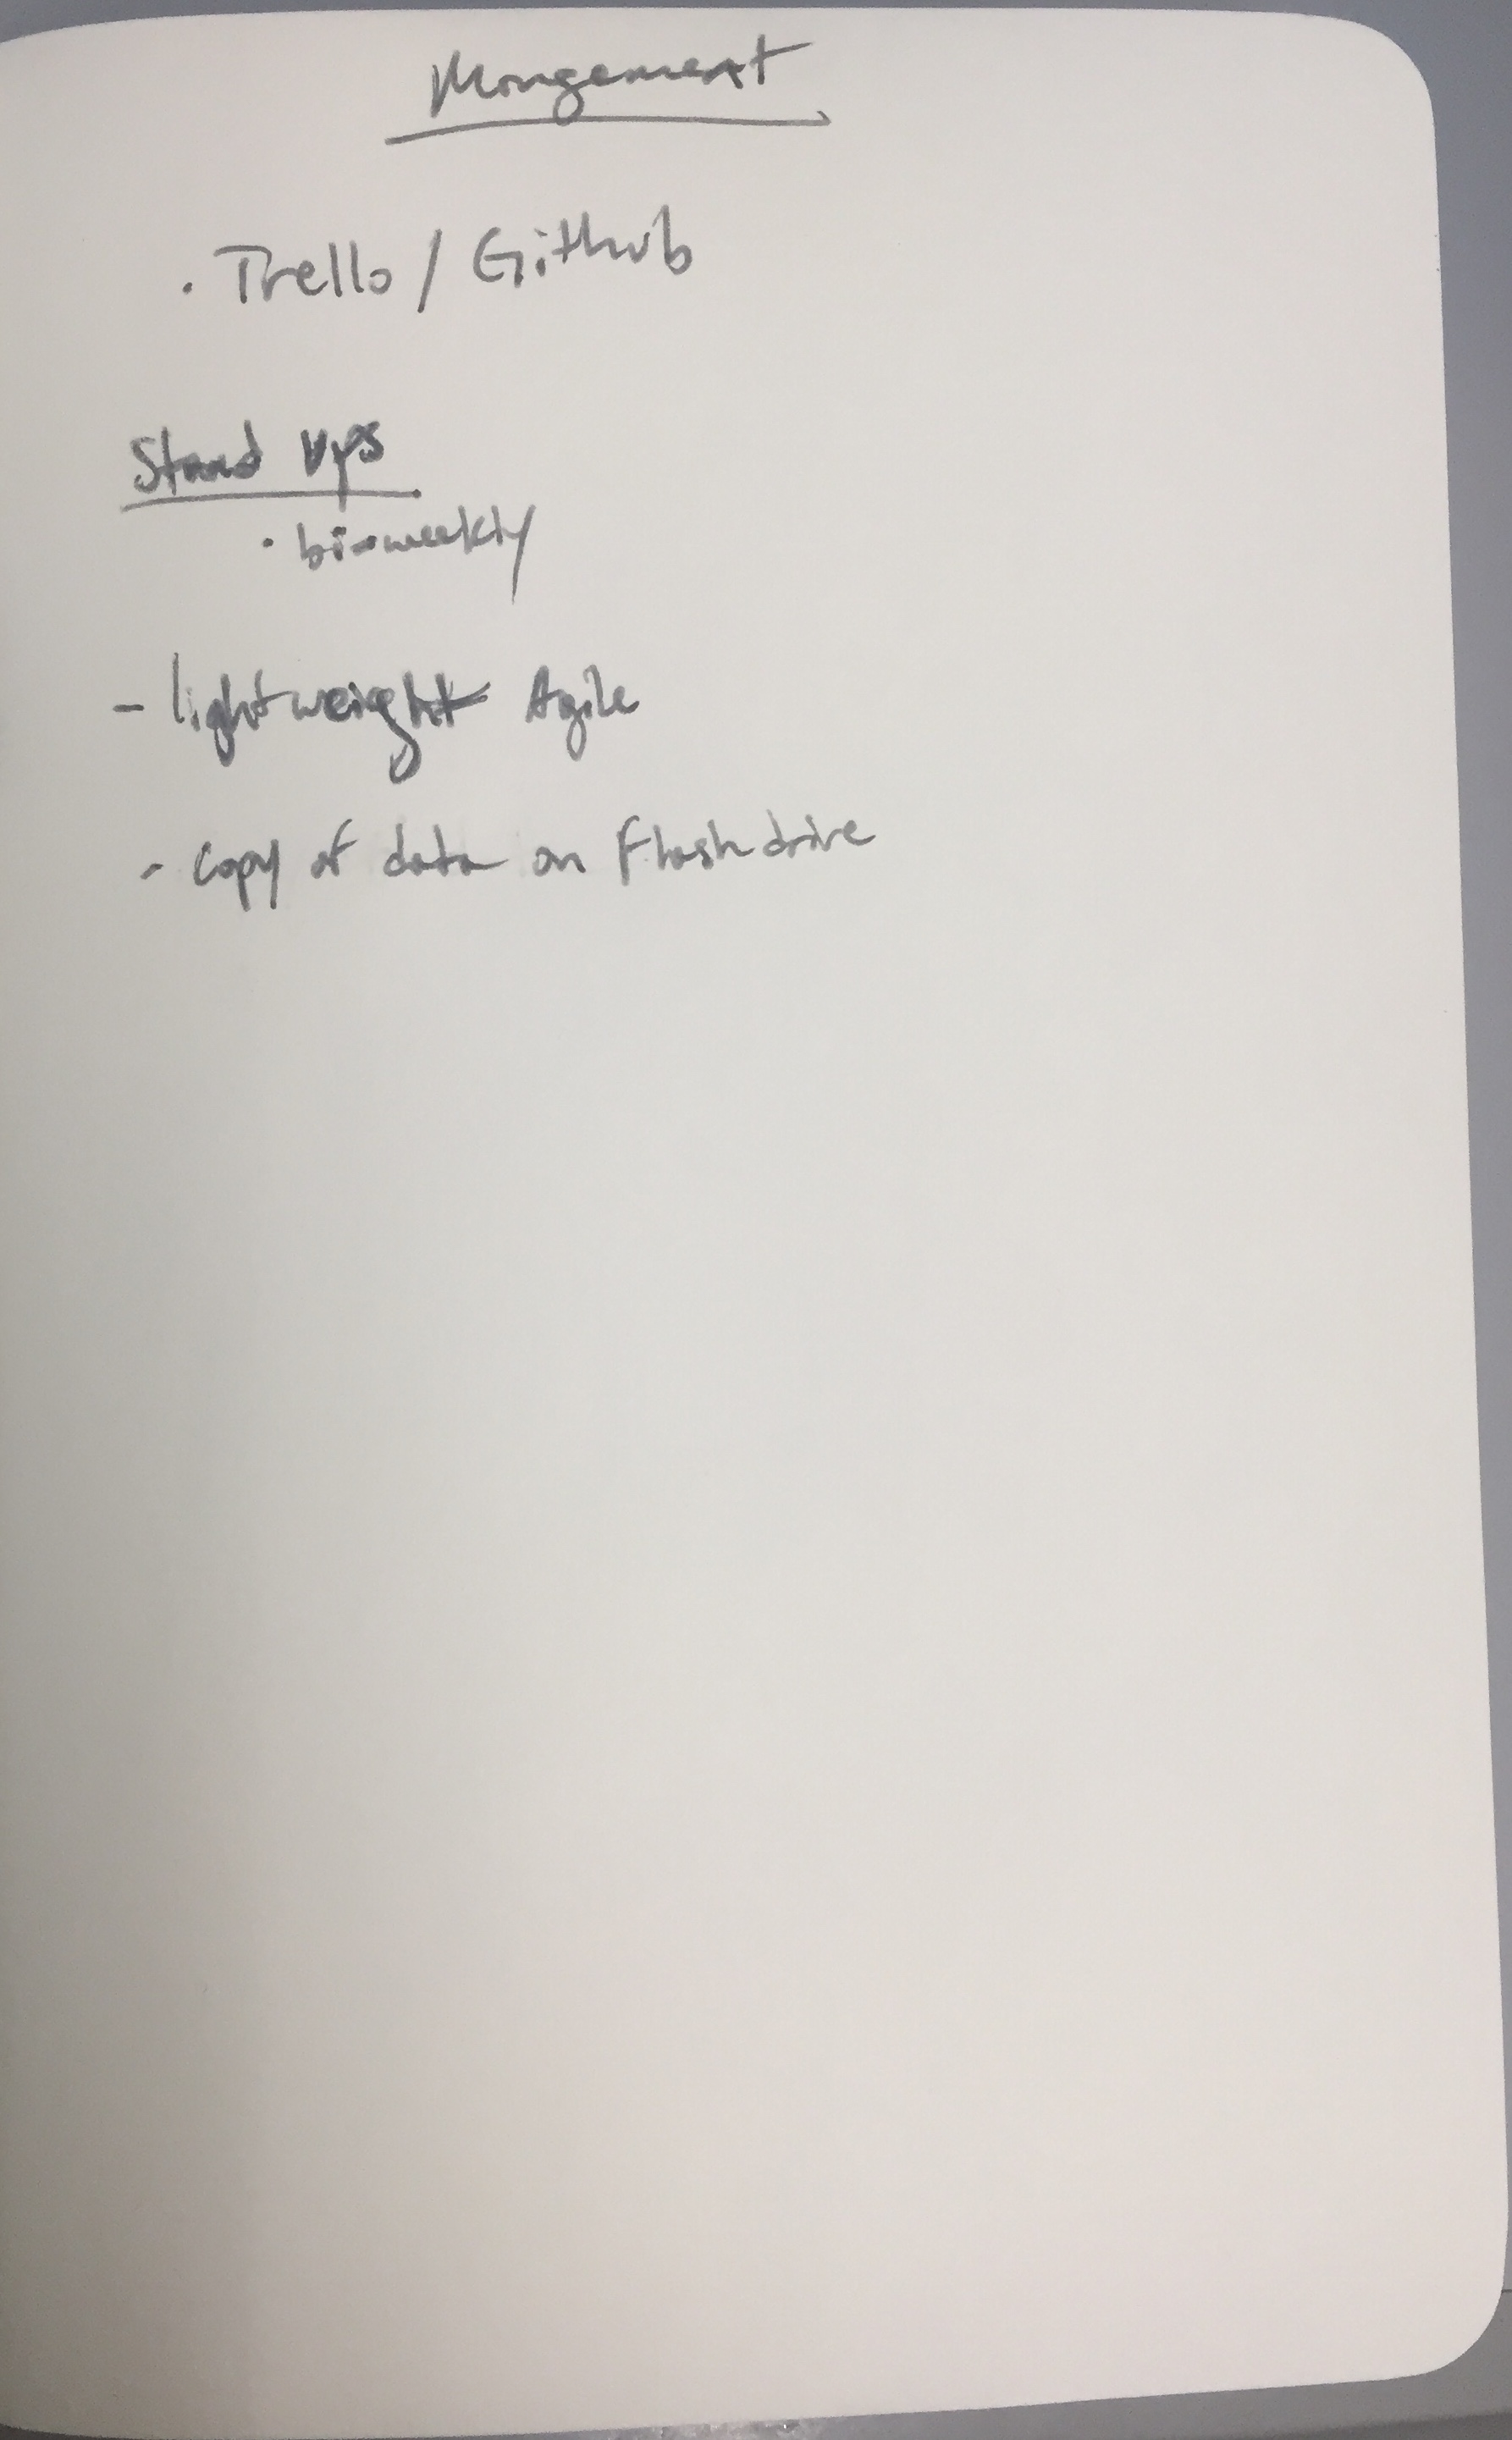 Mangement
. Trello / Github
Stand Ups
· bi-weekly
- lightweight Agile
- Copy of data on Flash drive